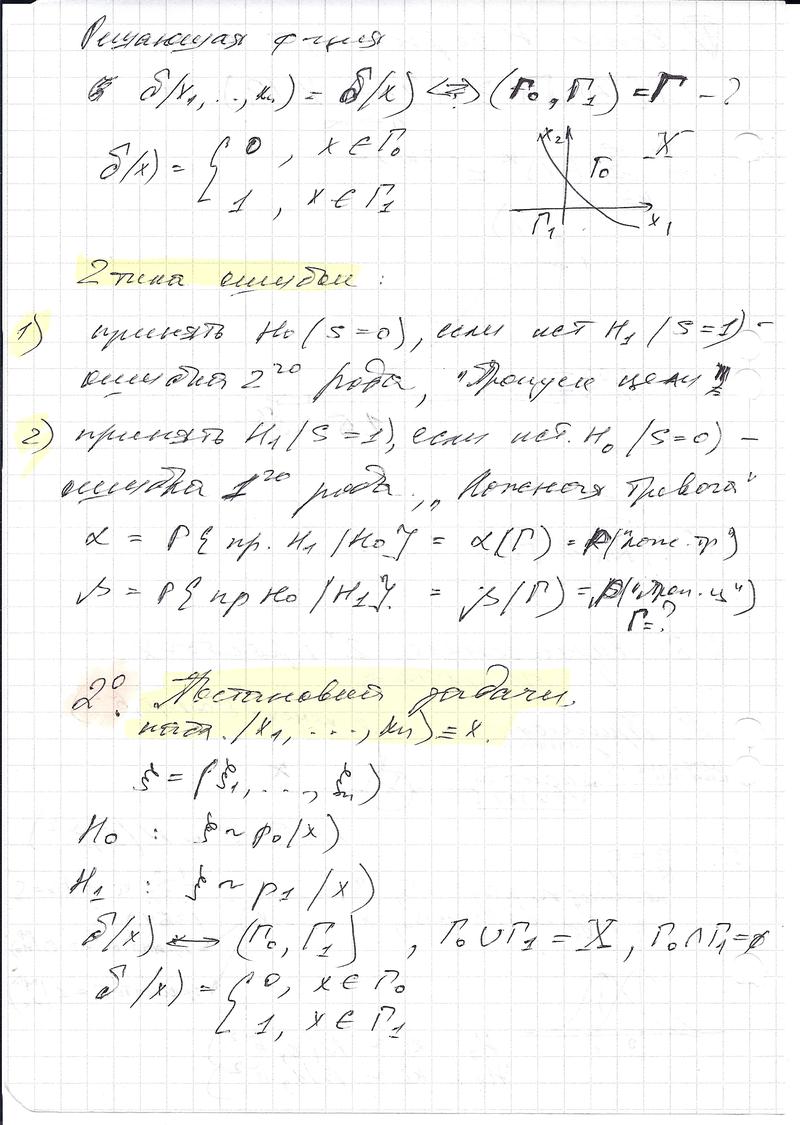 Решающая ф-ция
δ(x₁,...,xₙ) = δ(x) <=> (Γ₀, Γ₁) = Γ - ?
δ(x) = { 0, x ∈ Γ₀
1, x ∈ Γ₁
x₂ Γ₀ X
Γ₁ x₁
2 типа ошибок:
1) принять H₀ (S=0), если ист H₁ (S=1) -
ошибка 2го рода, "Пропуск цели"
2) принять H₁ (S=1), если ист. H₀ (S=0) -
ошибка 1го рода, „Ложная тревога"
α = P{пр. H₁ / H₀} = α(Γ) = P("лож.тр")
β = P{пр H₀ / H₁} = β(Γ) = P("проп.ц")
Γ=?
2°. Постановка задачи.
(x₁, ..., xₙ) ≡ x.
ξ = (ξ₁, ..., ξₙ)
H₀ : ξ ~ p₀(x)
H₁ : ξ ~ p₁(x)
δ(x) ↔ (Γ₀, Γ₁), Γ₀ ∪ Γ₁ = X, Γ₀ ∩ Γ₁ = ∅
δ(x) = { 0, x ∈ Γ₀
1, x ∈ Γ₁